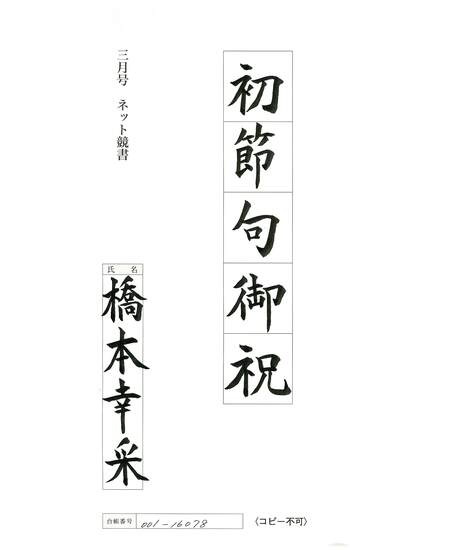 初節句御祝
三月号 ネット競書
氏名
橋本幸采
台帳番号 001-16078
〈コピー不可〉